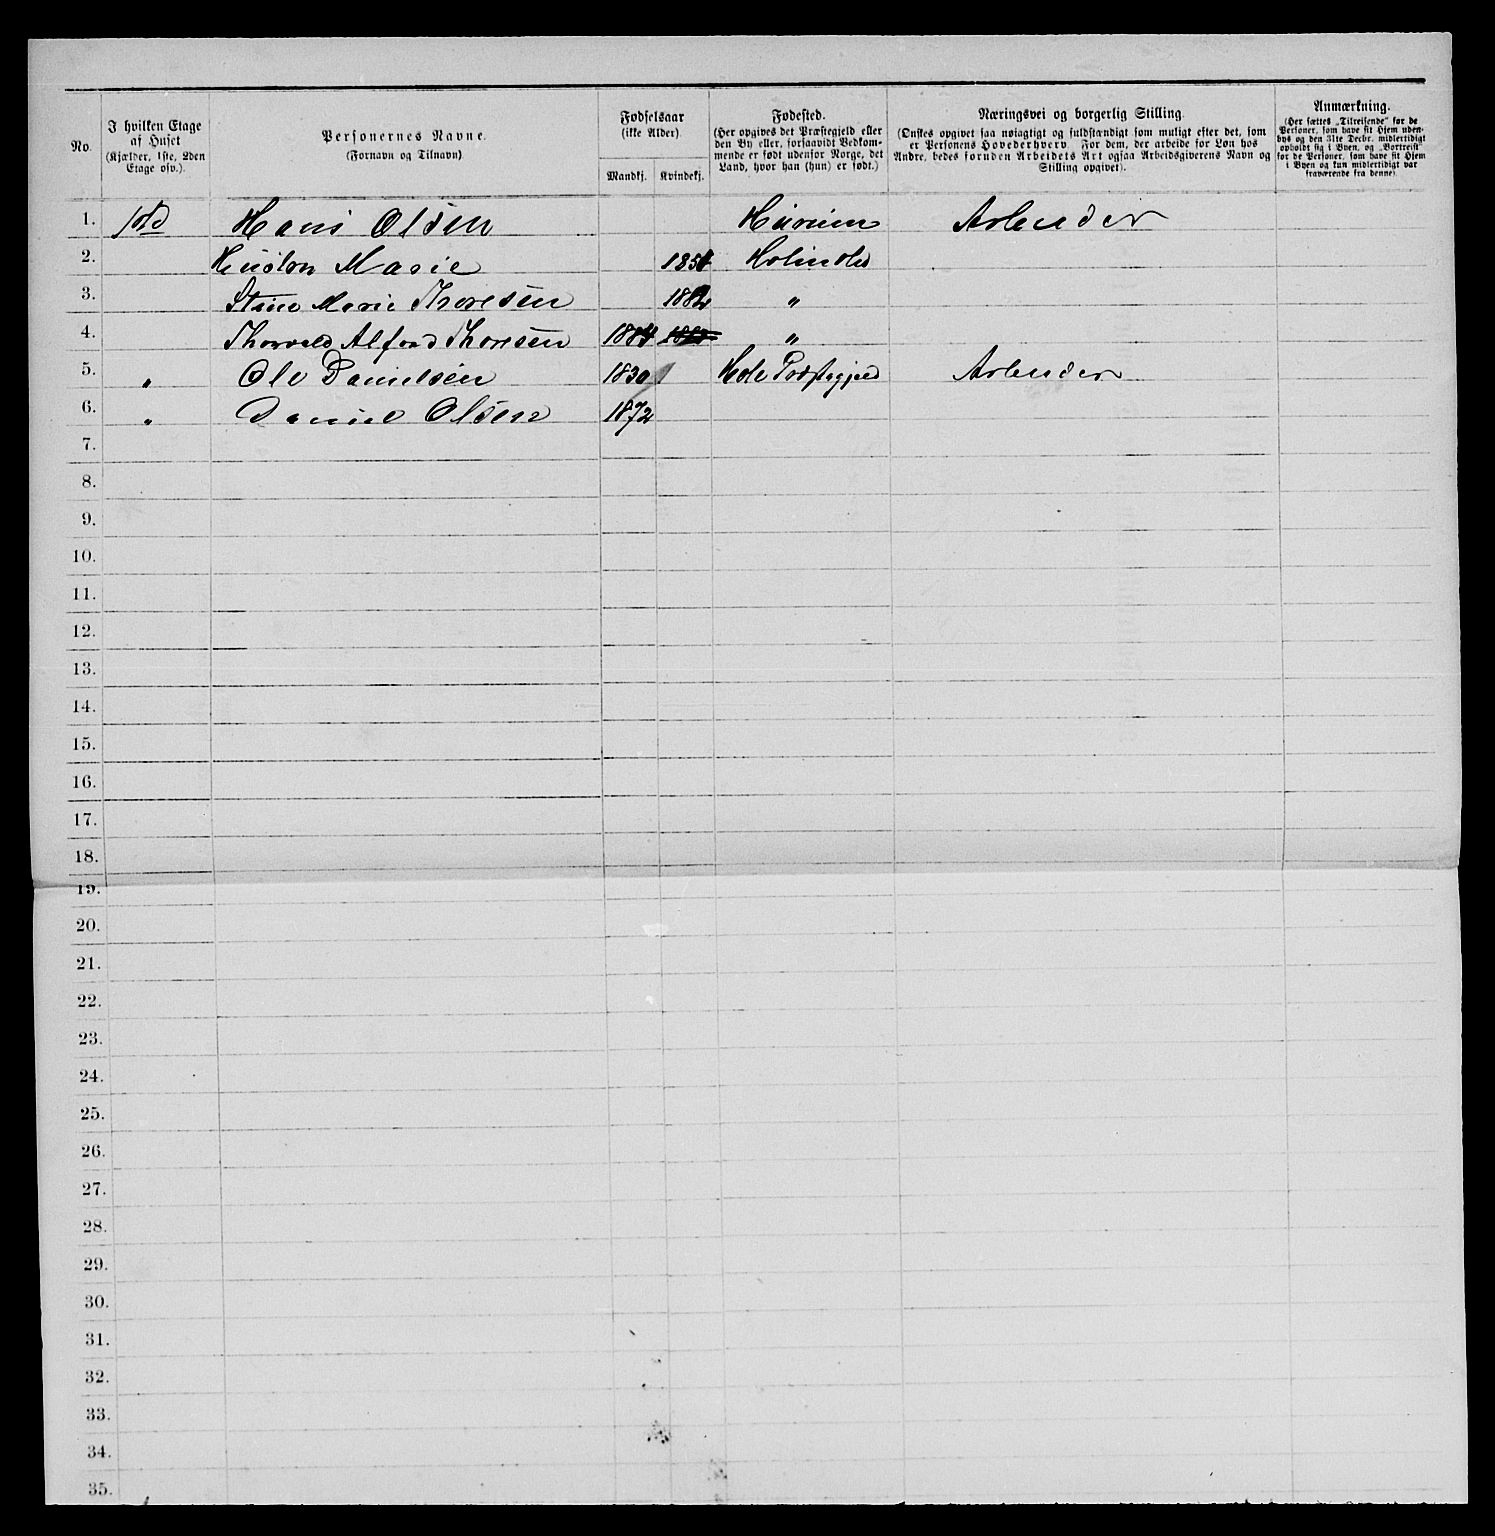 No.
I hvilken Etage
af Huset
(Kjælder, 1ste, 2den
Etage osv.).
Personernes Navne.
(Fornavn og Tilnavn)
Fødselsaar
(ikke Alder).
Mandkj. Kvindekj.
Fødested.
(Her opgives det Præstegjeld eller
den By eller, forsaavidt Vedkom-
mende er født udenfor Norge, det
Land, hvor han (hun) er født.)
Næringsvei og borgerlig Stilling.
(Ønskes opgivet saa nøiagtigt og fuldstændigt som muligt efter det, som
er Personens Hovederhverv. For dem, der arbeide for Løn hos
Andre, bedes foruden Arbeidets Art ogsaa Arbeidsgiverens Navn og
Stilling opgivet).
Anmærkning.
(Her sættes „Tilreisende" for de
Personer, som have sit Hjem uden-
bys og den 31te Decbr. midlertidigt
opholdt sig i Byen, og „Bortreist"
for de Personer, som have sit Hjem
i Byen og kun midlertidigt var
fraværende fra denne).
1. Hans Olsen Hurum Arbeider
2. Marie 1851
3. Marie Thoresen 1882 "
4. Thorvald Alfred Thoresen 1884 "
5. " Ole Danielsen 1830 Hole Arbeider
6. " Daniel Olsen 1872
7.
8.
9.
10.
11.
12.
13.
14.
15.
16.
17.
18.
19.
20.
21.
22.
23.
24.
25.
26.
27.
28.
29.
30.
31.
32.
33.
34.
35.